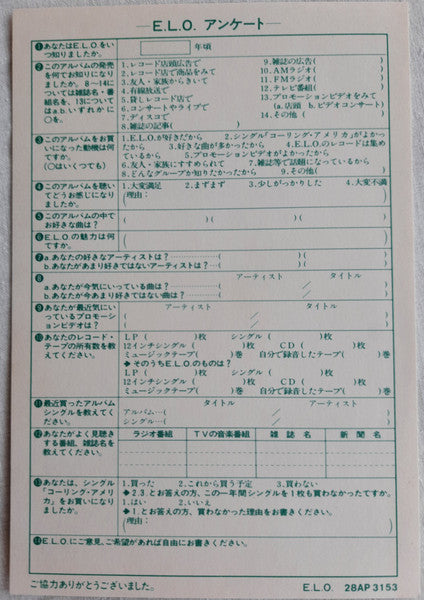 E.L.O. アンケート
❶あなたはE.L.O.をいつ知りましたか。
年頃
❷このアルバムの発売を何でお知りになりましたか。8〜14については雑誌名・番組名を、13についてはa.b.いずれかに○を。
1.レコード店頭広告で
2.レコード店で商品をみて
3.友人・家族からきいて
4.有線放送で
5.貸しレコード店で
6.コンサートやライブで
7.ディスコで
8.雑誌の記事( )
9.雑誌の広告( )
10.AMラジオ( )
11.FMラジオ( )
12.テレビ番組( )
13.プロモーションビデオをみて
(a.店頭 b.ビデオコンサート)
14.その他( )
❸このアルバムをお買いになった動機は何ですか。(○はいくつでも)
1.E.L.O.が好きだから 2.シングル「コーリング・アメリカ」がよかったから 3.好きな曲が多かったから 4.E.L.O.のレコードは集めているから 5.プロモーションビデオがよかったから
6.友人・家族にすすめられて 7.雑誌等で話題になっているから
8.どんなグループか知りたかったから 9.その他( )
❹このアルバムを聴いてどう感じになりましたか。
1.大変満足 2.まずまず 3.少しがっかりした 4.大変不満
(理由: )
❺このアルバムの中でお好きな曲は?
( )( )( )
❻E.L.O.の魅力は何ですか。
❼a.あなたの好きなアーティストは?…( )( )
b.あなたがあまり好きではないアーティストは?…( )
❽ アーティスト タイトル
a.あなたが今気にいっている曲は?( / )
b.あなたが今あまり好きではない曲は?( / )
❾あなたが最近気にいっているプロモーションビデオは?
アーティスト タイトル
( / )
❿あなたのレコード・テープの所有数を教えてください。
LP( )枚 シングル( )枚
12インチシングル( )枚 CD( )枚
ミュージックテープ( )巻 自分で録音したテープ( )巻
➔そのうちE.L.O.のものは?
LP( )枚 シングル( )枚
12インチシングル( )枚 CD( )枚
ミュージックテープ( )巻 自分で録音したテープ( )巻
⓫最近買ったアルバムシングルを教えてください。
タイトル アーティスト
アルバム…( / )
シングル…( / )
⓬あなたがよく見聴きする番組、雑誌名を教えてください。
ラジオ番組 TVの音楽番組 雑誌名 新聞名
⓭あなたは、シングル「コーリング・アメリカ」をお買いになりましたか。
1.買った 2.これから買う予定 3.買わない
➔2.3.とお答えの方、この一年間シングルを1枚も買わなかったですか。
1.はい 2.いいえ
➔1.とお答えの方、買わなかった理由をお書きください。
(理由: )
⓮E.L.O.にご意見、ご希望があれば自由にお書きください。
ご協力ありがとうございました。
E.L.O. 28AP 3153